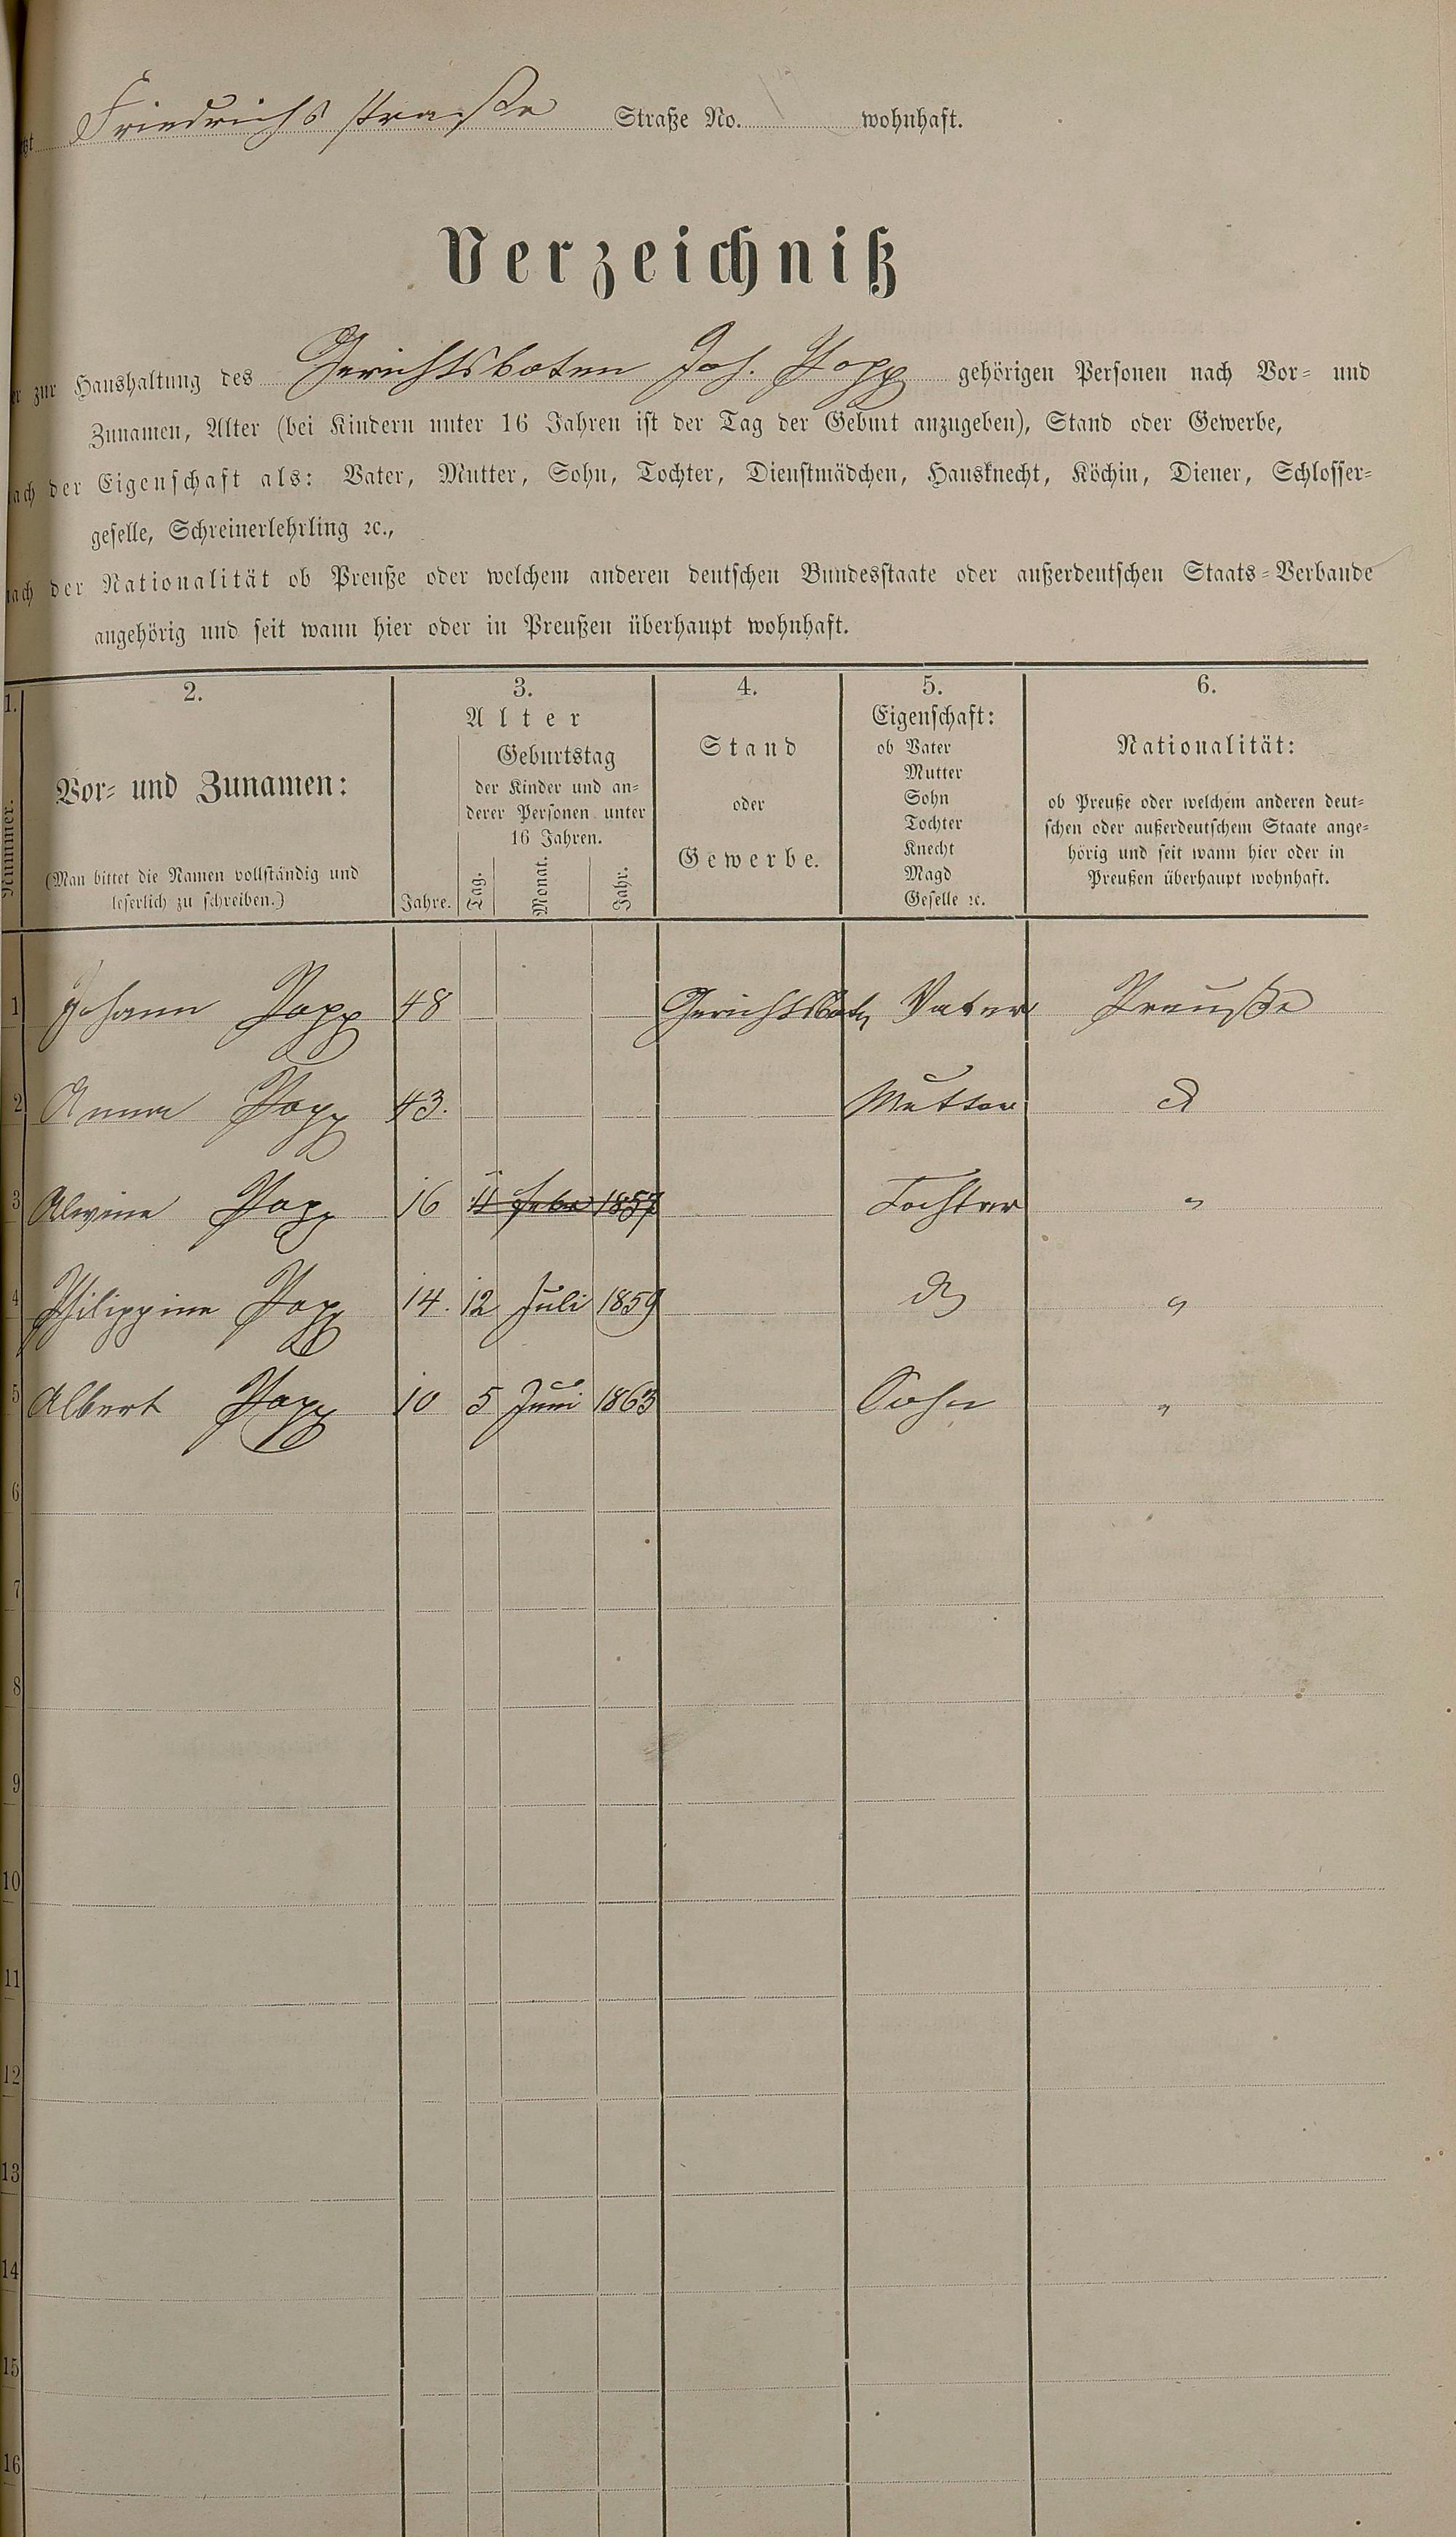 Friedrichs straße Straße No. wohnhaft.
Verzeichniß
zur Haushaltung des Gerichtsboten Joh. Popp gehörigen Personen nach Vor- und
Zunamen, Alter (bei Kindern unter 16 Jahren ist der Tag der Geburt anzugeben), Stand oder Gewerbe,
nach der Eigenschaft als: Vater, Mutter, Sohn, Tochter, Dienstmädchen, Hausknecht, Köchin, Diener, Schlosser-
geselle, Schreinerlehrling ꝛc.,
nach der Nationalität ob Preuße oder welchem anderen deutschen Bundesstaate oder außerdeutschen Staats-Verbande
angehörig und seit wann hier oder in Preußen überhaupt wohnhaft.
1. 2. 3. 4. 5. 6.
Nummer.
Vor- und Zunamen:
(Man bittet die Namen vollständig und
leserlich zu schreiben.)
Alter
Jahre.
Geburtstag
der Kinder und an-
derer Personen unter
16 Jahren.
Tag. Monat. Jahr.
Stand
oder
Gewerbe.
Eigenschaft:
ob Vater
Mutter
Sohn
Tochter
Knecht
Magd
Geselle ꝛc.
Nationalität:
ob Preuße oder welchem anderen deut-
schen oder außerdeutschem Staate ange-
hörig und seit wann hier oder in
Preußen überhaupt wohnhaft.
1 Johann Popp 48 Gerichtsbote Vater Preuße
2 Anna Popp 43. Mutter do
3 Alwine Popp 16 11 Febr 1857 Tochter "
4 Philippine Popp 14. 12 Juli 1859 do "
5 Albert Popp 10 5 Juni 1863 Sohn "
6
7
8
9
10
11
12
13
14
15
16